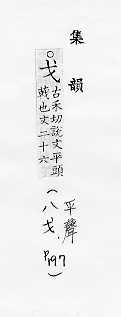 集韻
○戈古禾切說文平頭
戟也文二十六
平聲
(八戈.P.197)